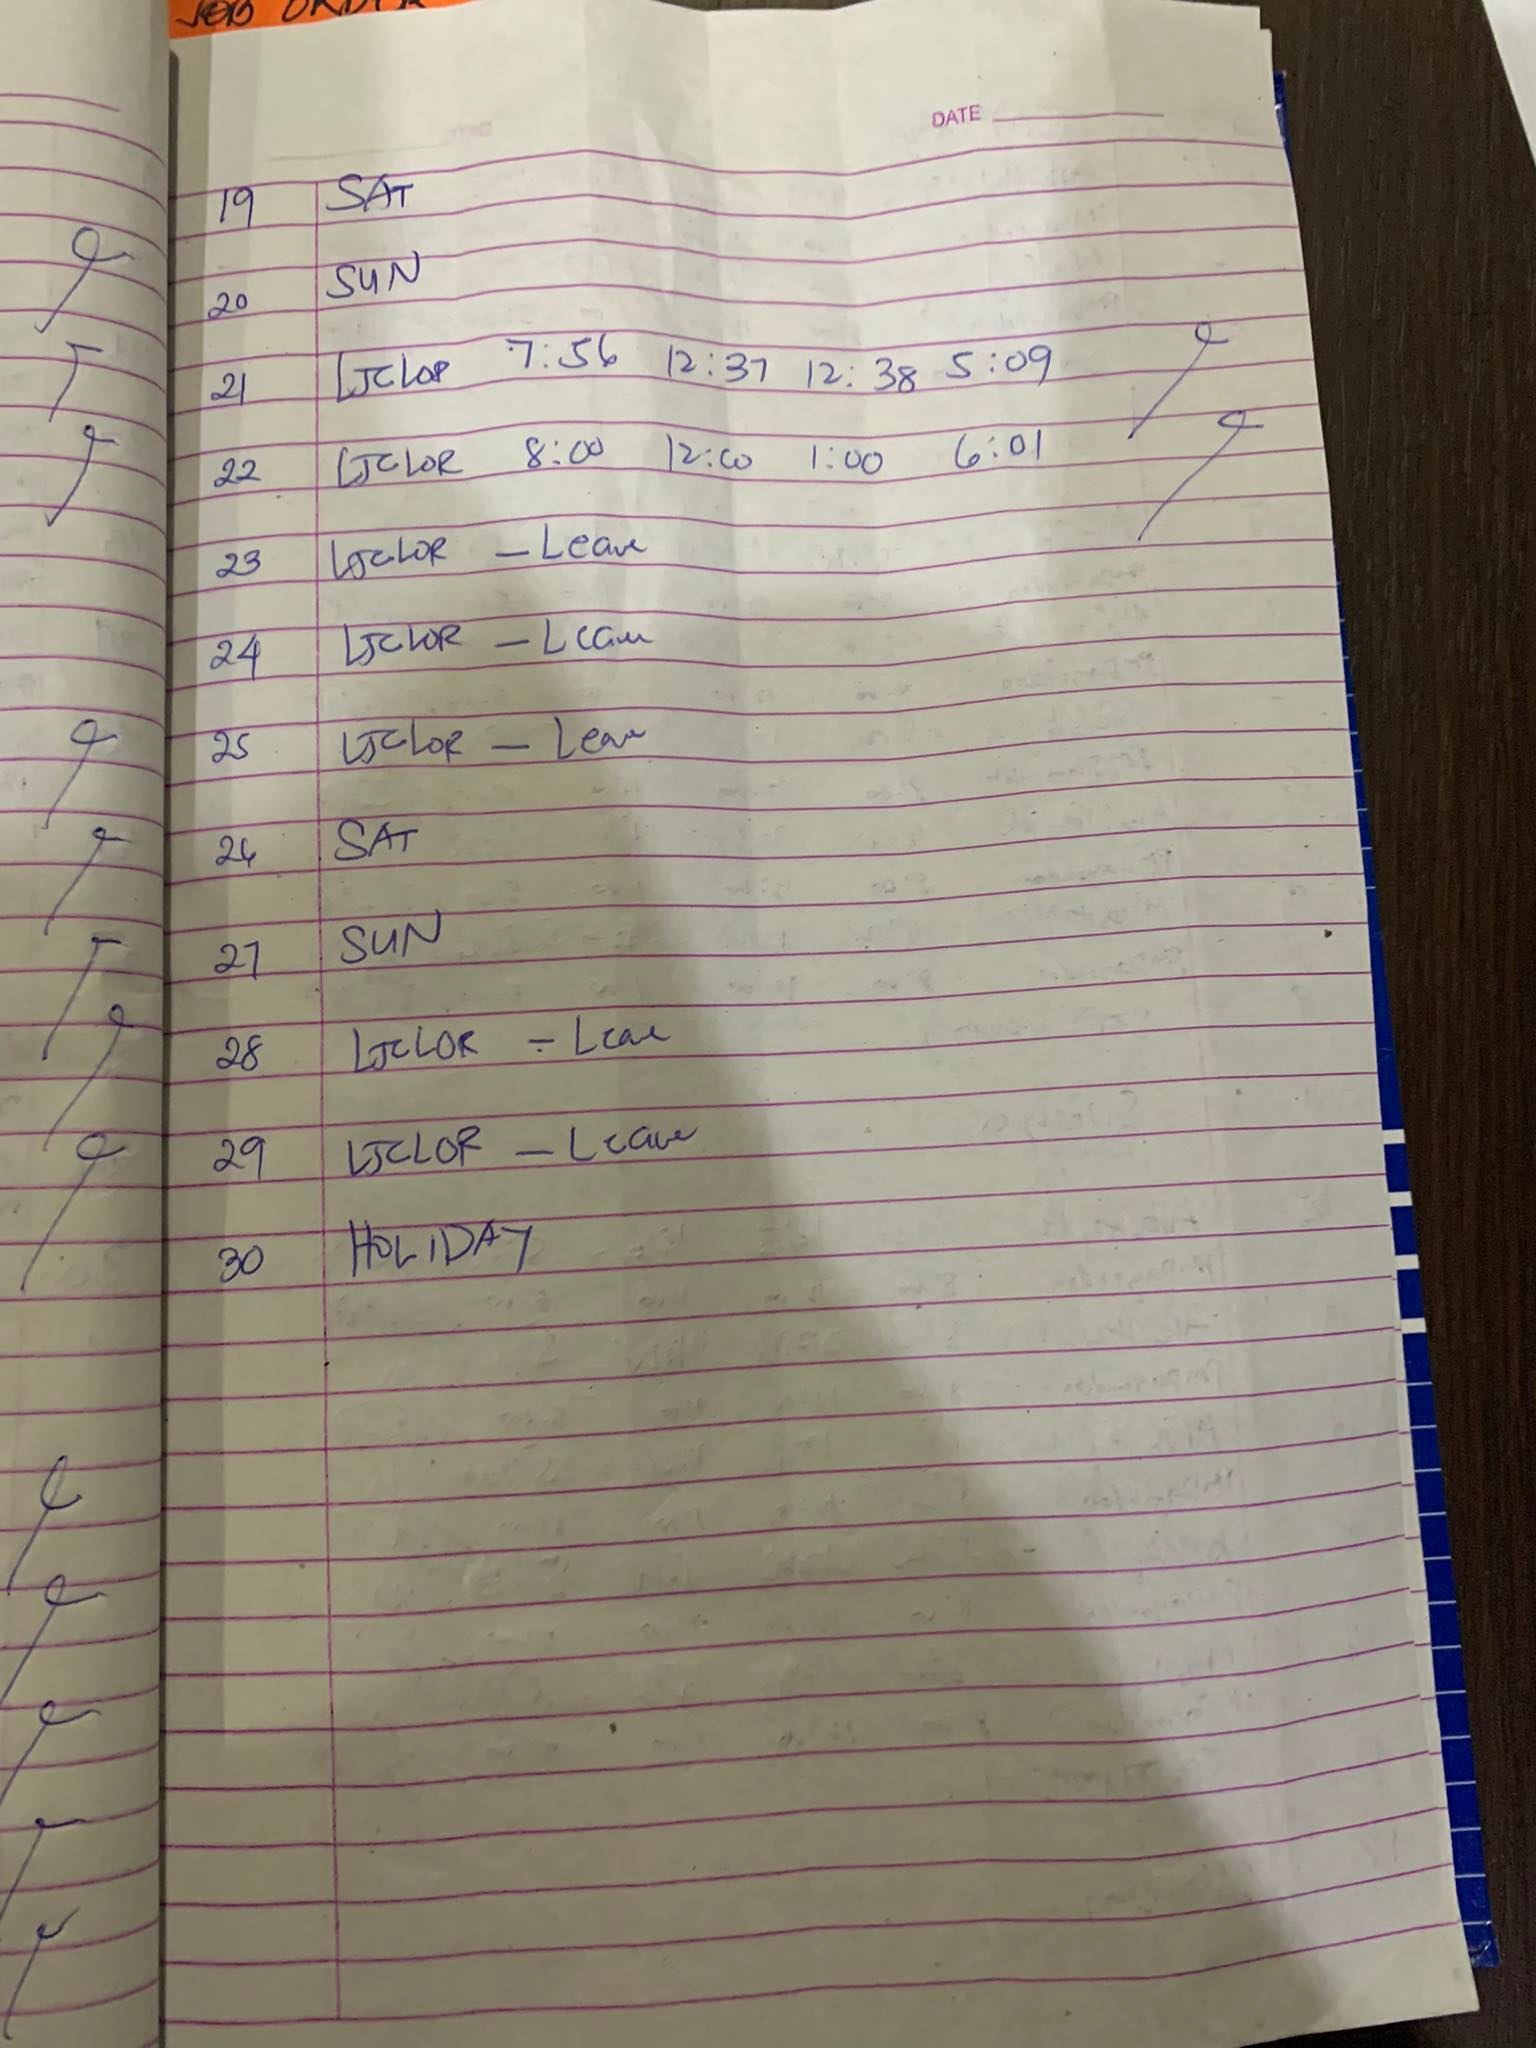 JOB ORDER
DATE
19 SAT
20 SUN
21 LJCLOR 7:56 12:37 12:38 5:09
22 LJCLOR 8:00 12:00 1:00 6:01
23 LJCLOR - Leave
24 LJCLOR - Leave
25 LJCLOR - Leave
26 SAT
27 SUN
28 LJCLOR - Leave
29 LJCLOR - Leave
30 HOLIDAY